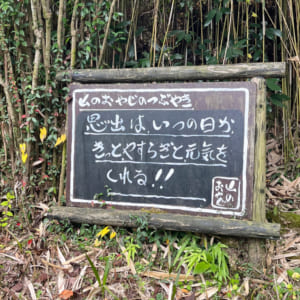 山のおやじのつぶやき
思出は、いつの日か
きっとやすらぎと元気を
くれる!!
山の
おやじ